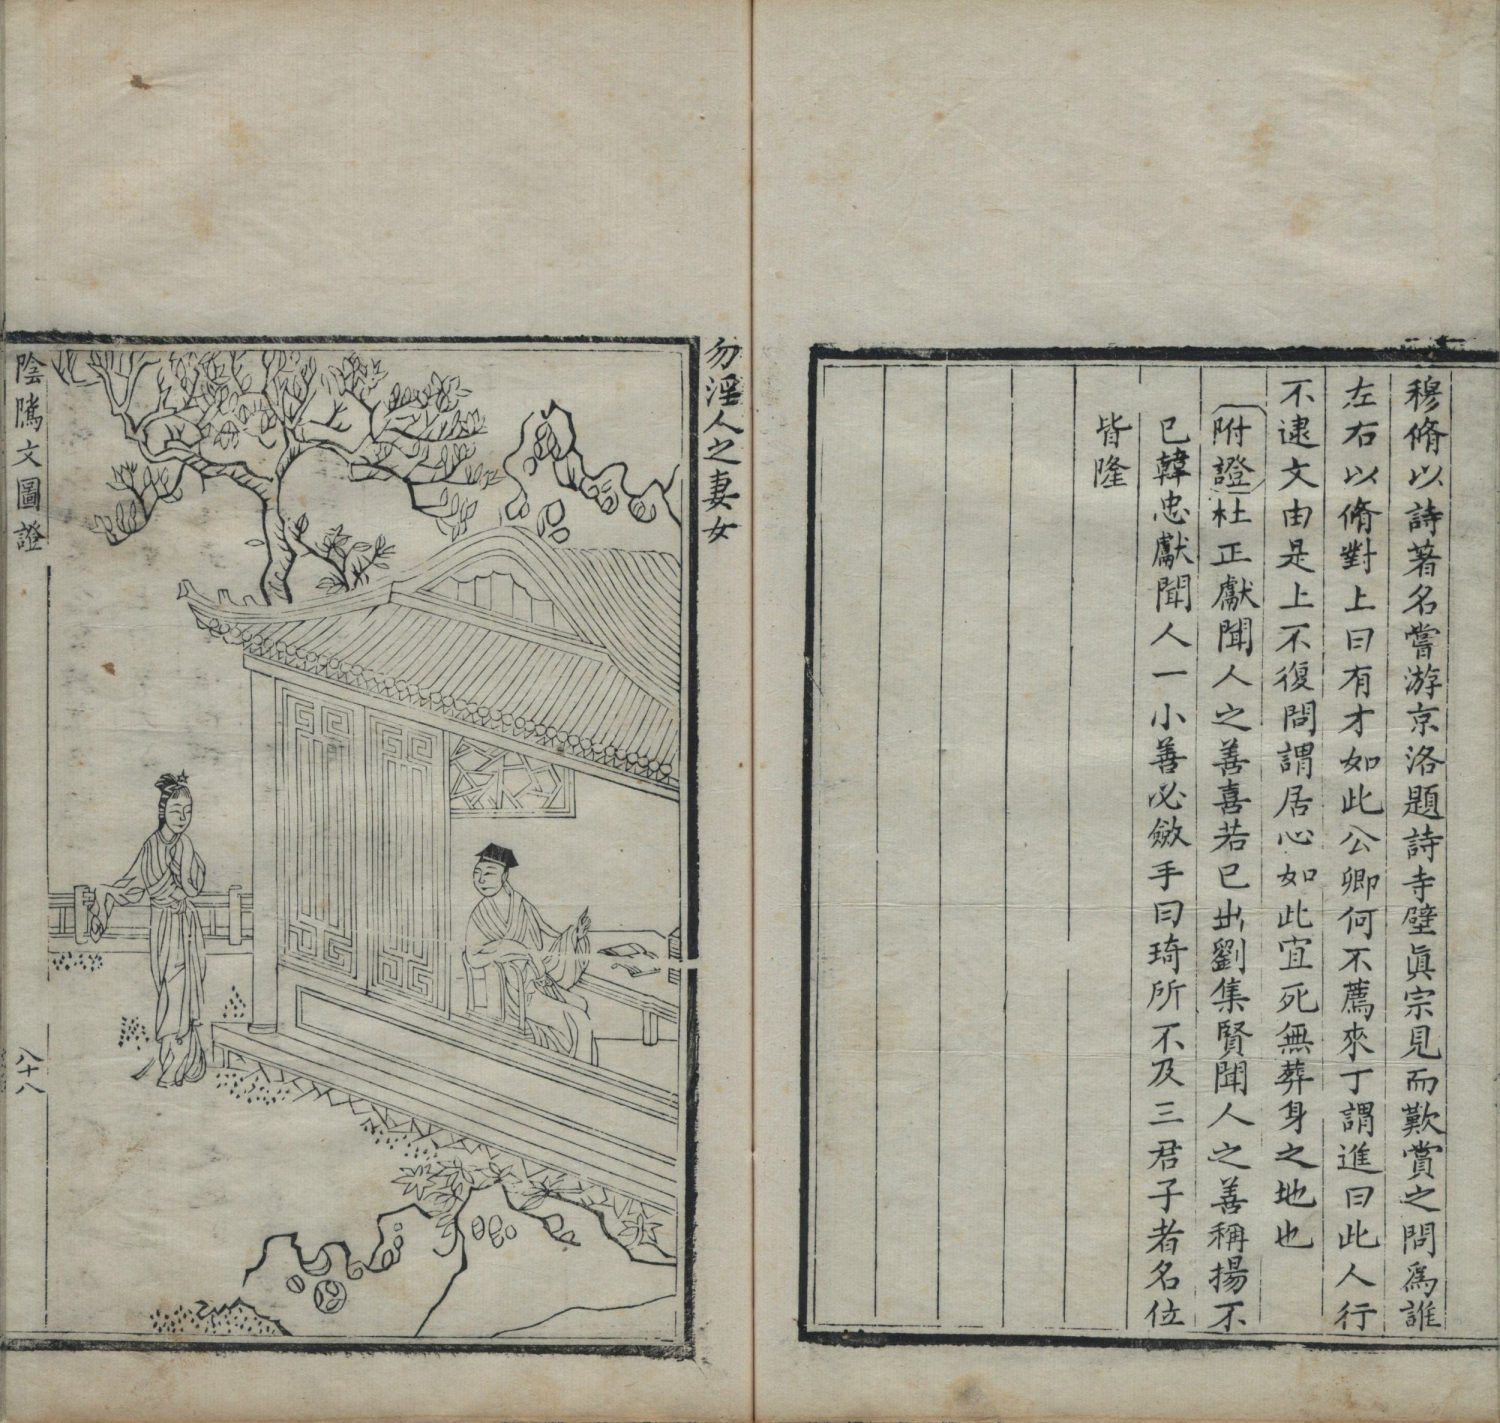 穆脩以詩著名嘗游京洛題詩寺壁眞宗見而歎賞之問爲誰
左右以脩對上曰有才如此公卿何不薦來丁謂進曰此人行
不逮文由是上不復問謂居心如此宜死無葬身之地也
附證杜正獻聞人之善喜若已出劉集賢聞人之善稱揚不
已韓忠獻聞人一小善必斂手曰琦所不及三君子者名位
皆隆
勿淫人之妻女
陰騭文圖證
八十八